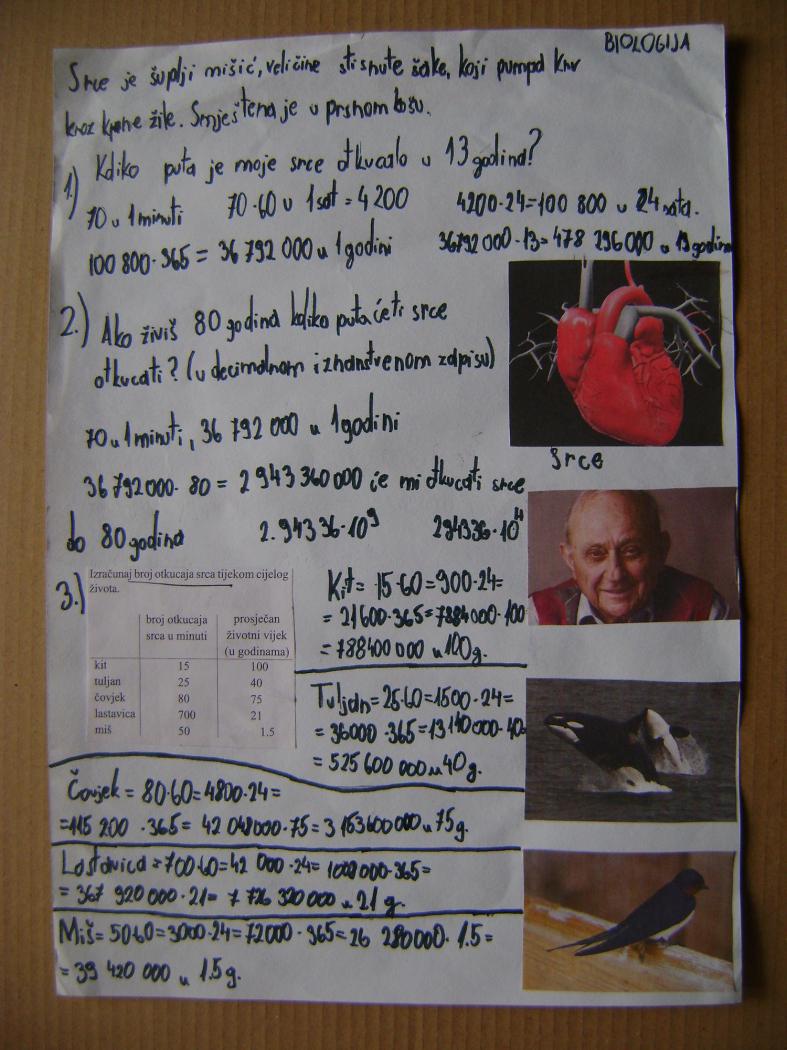 BIOLOGIJA
Srce je šuplji mišić, veličine stisnute šake, koji pumpa krv
kroz krvne žile. Smještena je u prsnom košu.
1) Koliko puta je moje srce otkucalo u 13 godina?
70 u 1 minuti 70·60 u 1 sat = 4 200 4200·24=100 800 u 24 sata.
100 800·365 = 36 792 000 u 1 godini 36792 000·13=478 296 000 u 13 godina
2.) Ako živiš 80 godina koliko puta će ti srce
otkucati? (u decimalnom i znanstvenom zapisu)
70 u 1 minuti, 36 792 000 u 1 godini
36 792 000· 80 = 2 943 360 000 će mi otkucati srce
do 80 godina 2.94336·10⁹ 294336·10⁴
srce
3.)
Izračunaj broj otkucaja srca tijekom cijelog
života.
broj otkucaja srca u minuti prosječan životni vijek (u godinama)
kit 15 100
tuljan 25 40
čovjek 80 75
lastavica 700 21
miš 50 1.5
Kit= 15·60=900·24=
= 21600·365=7884000·100
= 788400 000 u 100 g.
Tuljan=25·60=1500·24=
= 36000 ·365=13 140 000·40
= 525 600 000 u 40 g.
Čovjek = 80·60=4800·24=
=115 200 ·365= 42 048000·75=3 153600000 u 75 g.
Lastavica =700·60=42 000 ·24= ·365=
= 367 920 000·21= 7 726 320 000 u 21 g.
Miš= 50·60=3000·24=72000·365=26 280000· 1.5=
= 39 420 000 u 1.5 g.